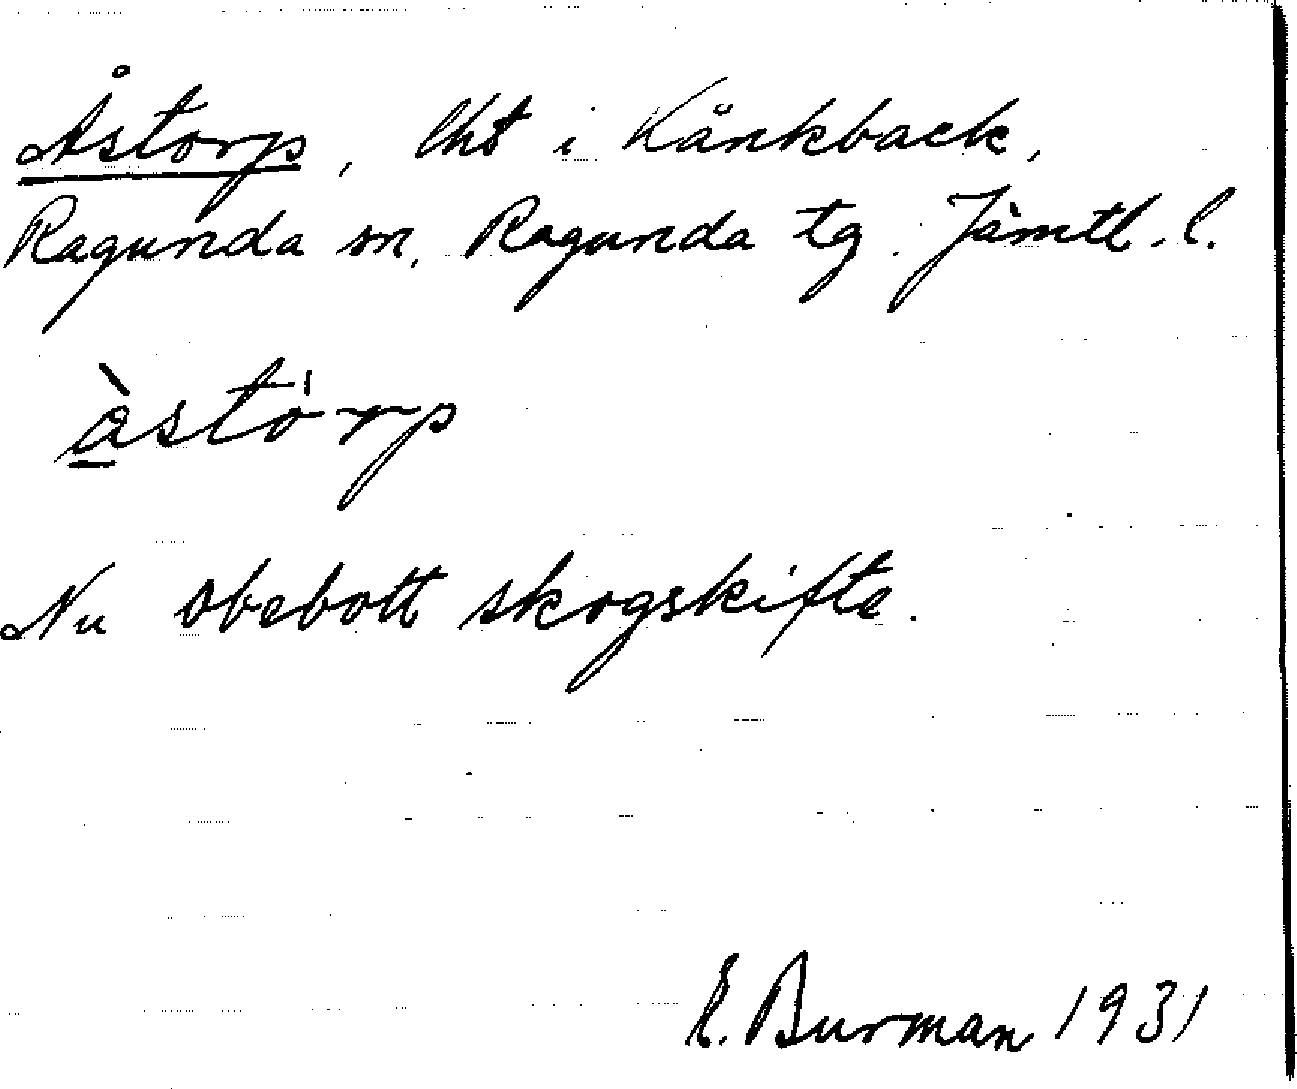 Åstorp, lht i Kånkback,
Ragunda sn, Ragunda tg. Jämtl. l.
àstórp
Nu obebott skogskifte.
E. Burman 1931